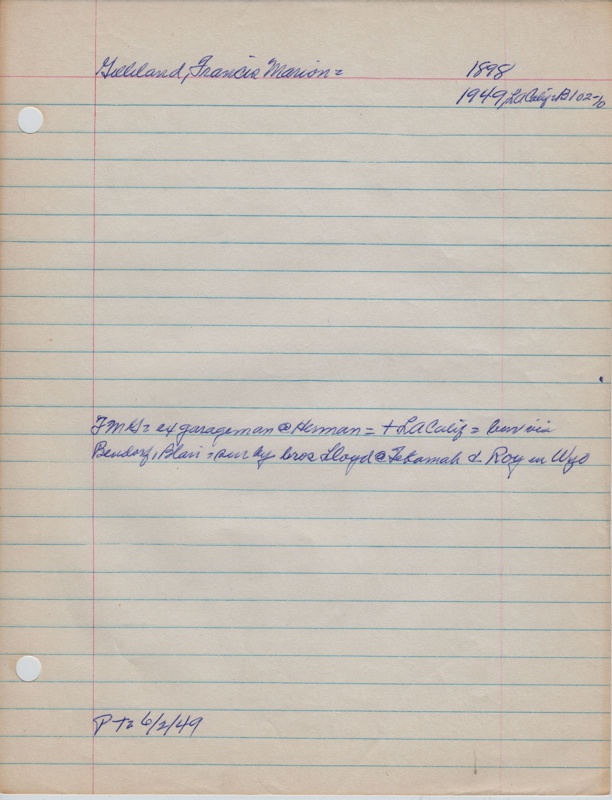 Gilliland, Francis Marion = 1898
1949, LA Calif = B102-10
FMG = ex garageman @ Herman = + LA Calif = bur via
Bendorf, Blair = sur by bros Lloyd @ Tekamah & Roy in Wyo
PT = 6/2/49